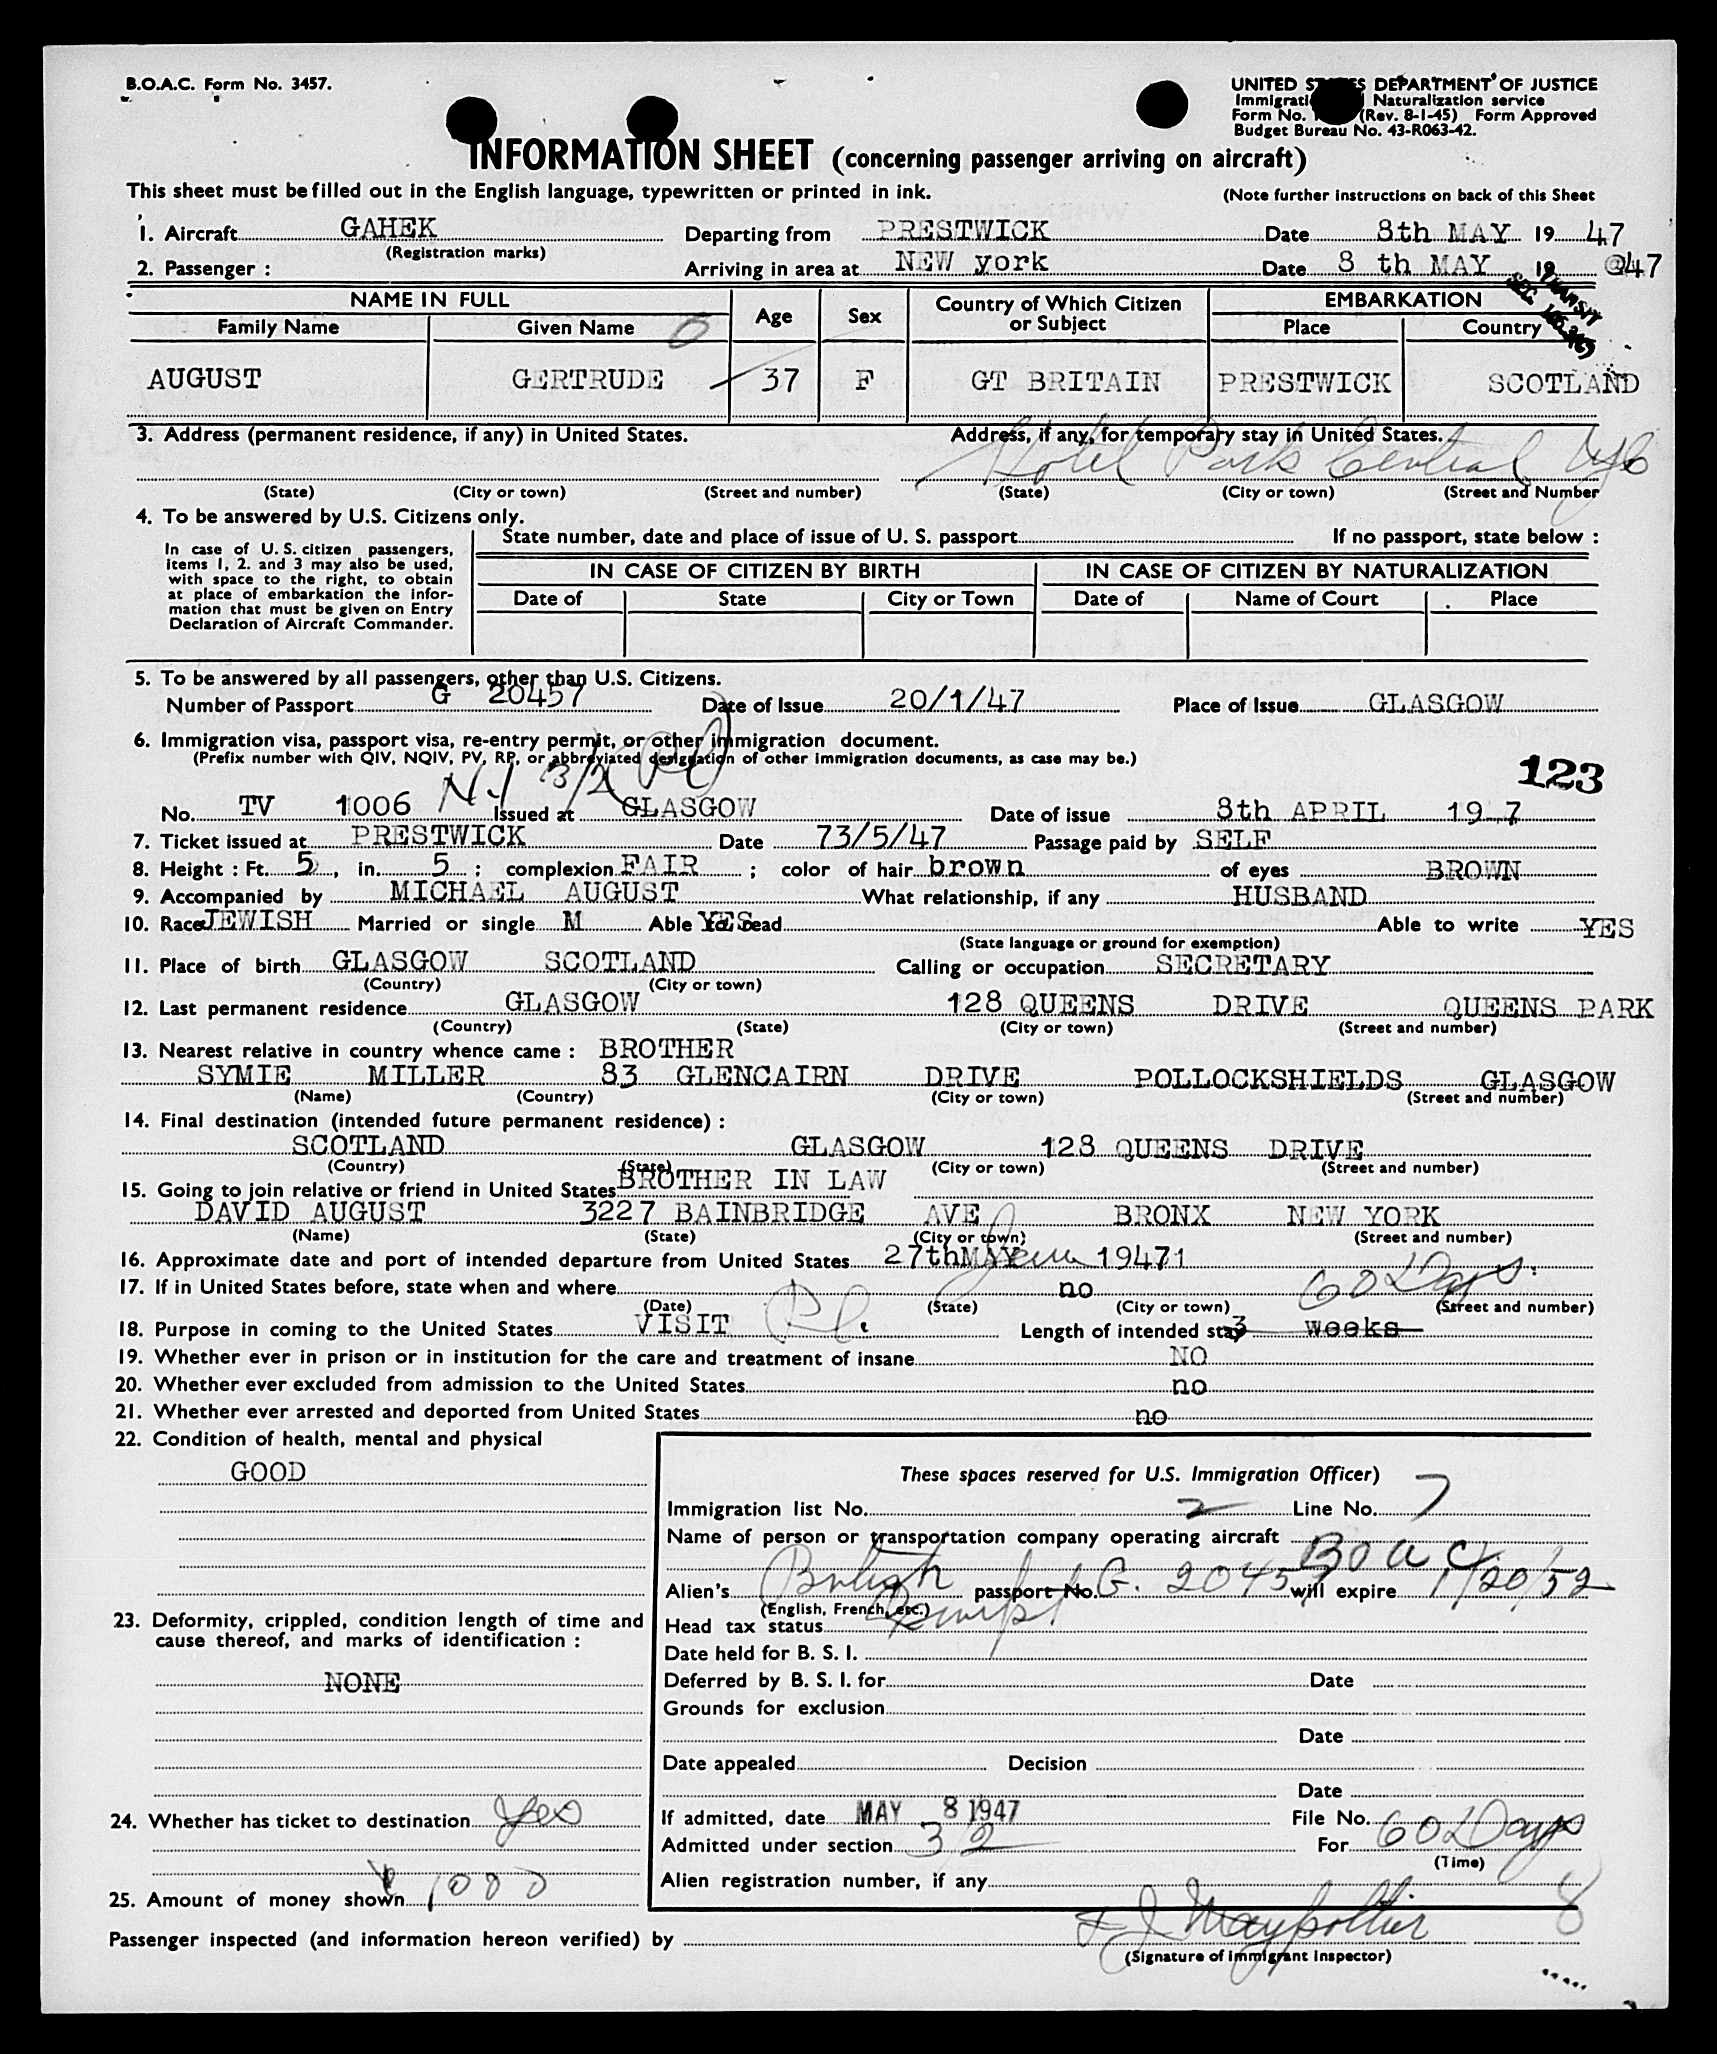 B.O.A.C. Form No. 3457.
UNITED S S DEPARTMENT OF JUSTICE
Immigrati Naturalization service
Form No. (Rev. 8-1-45) Form Approved
Budget Bureau No. 43-R063-42.
INFORMATION SHEET (concerning passenger arriving on aircraft)
This sheet must be filled out in the English language, typewritten or printed in ink. (Note further instructions on back of this Sheet
1. Aircraft GAHEK Departing from PRESTWICK Date 8th MAY 19 47
(Registration marks)
2. Passenger : Arriving in area at NEW york Date 8 th MAY 19 @47
TRANSIT
NAME IN FULL Age Sex Country of Which Citizen or Subject EMBARKATION
Family Name Given Name Place Country
AUGUST GERTRUDE 37 F GT BRITAIN PRESTWICK SCOTLAND
3. Address (permanent residence, if any) in United States. Address, if any, for temporary stay in United States.
Hotel Park Central NYC
(State) (City or town) (Street and number) (State) (City or town) (Street and Number
4. To be answered by U.S. Citizens only.
In case of U.S. citizen passengers, items 1, 2. and 3 may also be used, with space to the right, to obtain at place of embarkation the infor-mation that must be given on Entry Declaration of Aircraft Commander.
State number, date and place of issue of U. S. passport If no passport, state below :
IN CASE OF CITIZEN BY BIRTH IN CASE OF CITIZEN BY NATURALIZATION
Date of State City or Town Date of Name of Court Place
5. To be answered by all passengers, other than U.S. Citizens.
Number of Passport G 20457 Date of Issue 20/1/47 Place of Issue GLASGOW
6. Immigration visa, passport visa, re-entry permit, or other immigration document.
(Prefix number with QIV, NQIV, PV, RP, or abbreviated designation of other immigration documents, as case may be.)
123
No. TV 1006 N-1 3/2 Pl Issued at GLASGOW Date of issue 8th APRIL 19 7
7. Ticket issued at PRESTWICK Date 73/5/47 Passage paid by SELF
8. Height : Ft. 5, in. 5 ; complexion FAIR ; color of hair brown of eyes BROWN
9. Accompanied by MICHAEL AUGUST What relationship, if any HUSBAND
10. Race JEWISH Married or single M Able to read YES Able to write YES
(State language or ground for exemption)
11. Place of birth GLASGOW SCOTLAND Calling or occupation SECRETARY
(Country) (City or town)
12. Last permanent residence GLASGOW 128 QUEENS DRIVE QUEENS PARK
(Country) (State) (City or town) (Street and number)
13. Nearest relative in country whence came : BROTHER
SYMIE MILLER 83 GLENCAIRN DRIVE POLLOCKSHIELDS GLASGOW
(Name) (Country) (City or town) (Street and number)
14. Final destination (intended future permanent residence) :
SCOTLAND GLASGOW 128 QUEENS DRIVE
(Country) (State) (City or town) (Street and number)
15. Going to join relative or friend in United States BROTHER IN LAW
DAVID AUGUST 3227 BAINBRIDGE AVE BRONX NEW YORK
(Name) (State) (City or town) (Street and number)
16. Approximate date and port of intended departure from United States 27thMAY June 19471
17. If in United States before, state when and where no 60 Days.
(Date) (State) (City or town) (Street and number)
18. Purpose in coming to the United States VISIT Pl. Length of intended stay 3 weeks
19. Whether ever in prison or in institution for the care and treatment of insane NO
20. Whether ever excluded from admission to the United States no
21. Whether ever arrested and deported from United States no
22. Condition of health, mental and physical
GOOD
These spaces reserved for U.S. Immigration Officer)
Immigration list No. 2 Line No. 7
Name of person or transportation company operating aircraft B O A C.
Alien's British passport No. G. 20457 will expire 1/20/52
(English, French, etc.)
23. Deformity, crippled, condition length of time and cause thereof, and marks of identification :
NONE
Head tax status Exempt
Date held for B. S. I.
Deferred by B. S. I. for Date
Grounds for exclusion
Date
Date appealed Decision
Date
24. Whether has ticket to destination Yes
If admitted, date MAY 8 1947 File No.
Admitted under section 3/2 For 60 Days
(Time)
Alien registration number, if any
25. Amount of money shown 1000
Passenger inspected (and information hereon verified) by
8
(Signature of Immigrant Inspector)